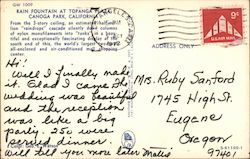 GW 1009
RAIN FOUNTAIN AT TOPANGA
CANOGA PARK, CALIFORNIA
From the 2-story ceiling, an estimated half-million
"raindrops" cascade slowly down columns
of nylon monofilaments into "tanks" in a beautiful
and exceptionally fascinating design of the
south end of this, the world's largest
all-enclosed and air-conditioned
shopping center.
ADDRESS ONLY
9¢
U.S. AIR MAIL
Hi!
Well I finally made
it. Glad I came. The
wedding was beautiful
and the reception
was like a big
party. 250 were
served dinner.
Will tell you more later
Mrs. Ruby Sanford
1745 High St.
Eugene
Oregon
9740